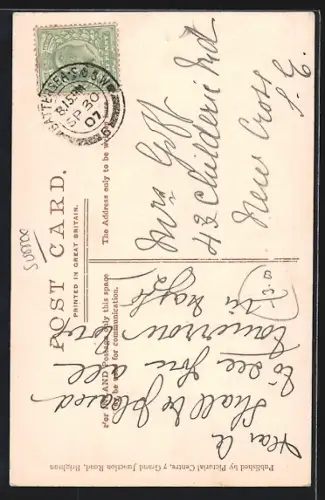 POST CARD.
PRINTED IN GREAT BRITAIN.
For INLAND Postage only this space
may be used for communication.
The Address only to be
BATTERSEA S.O. S.W.
8.15 PM
SP 30
07
Dear A
Shall be pleased
to see you all
tomorrow
in haste
Mrs Goff
43 Childeric Rd
New Cross
S. E.
Published by Pictorial Centre, 7 Grand Junction Road, Brighton